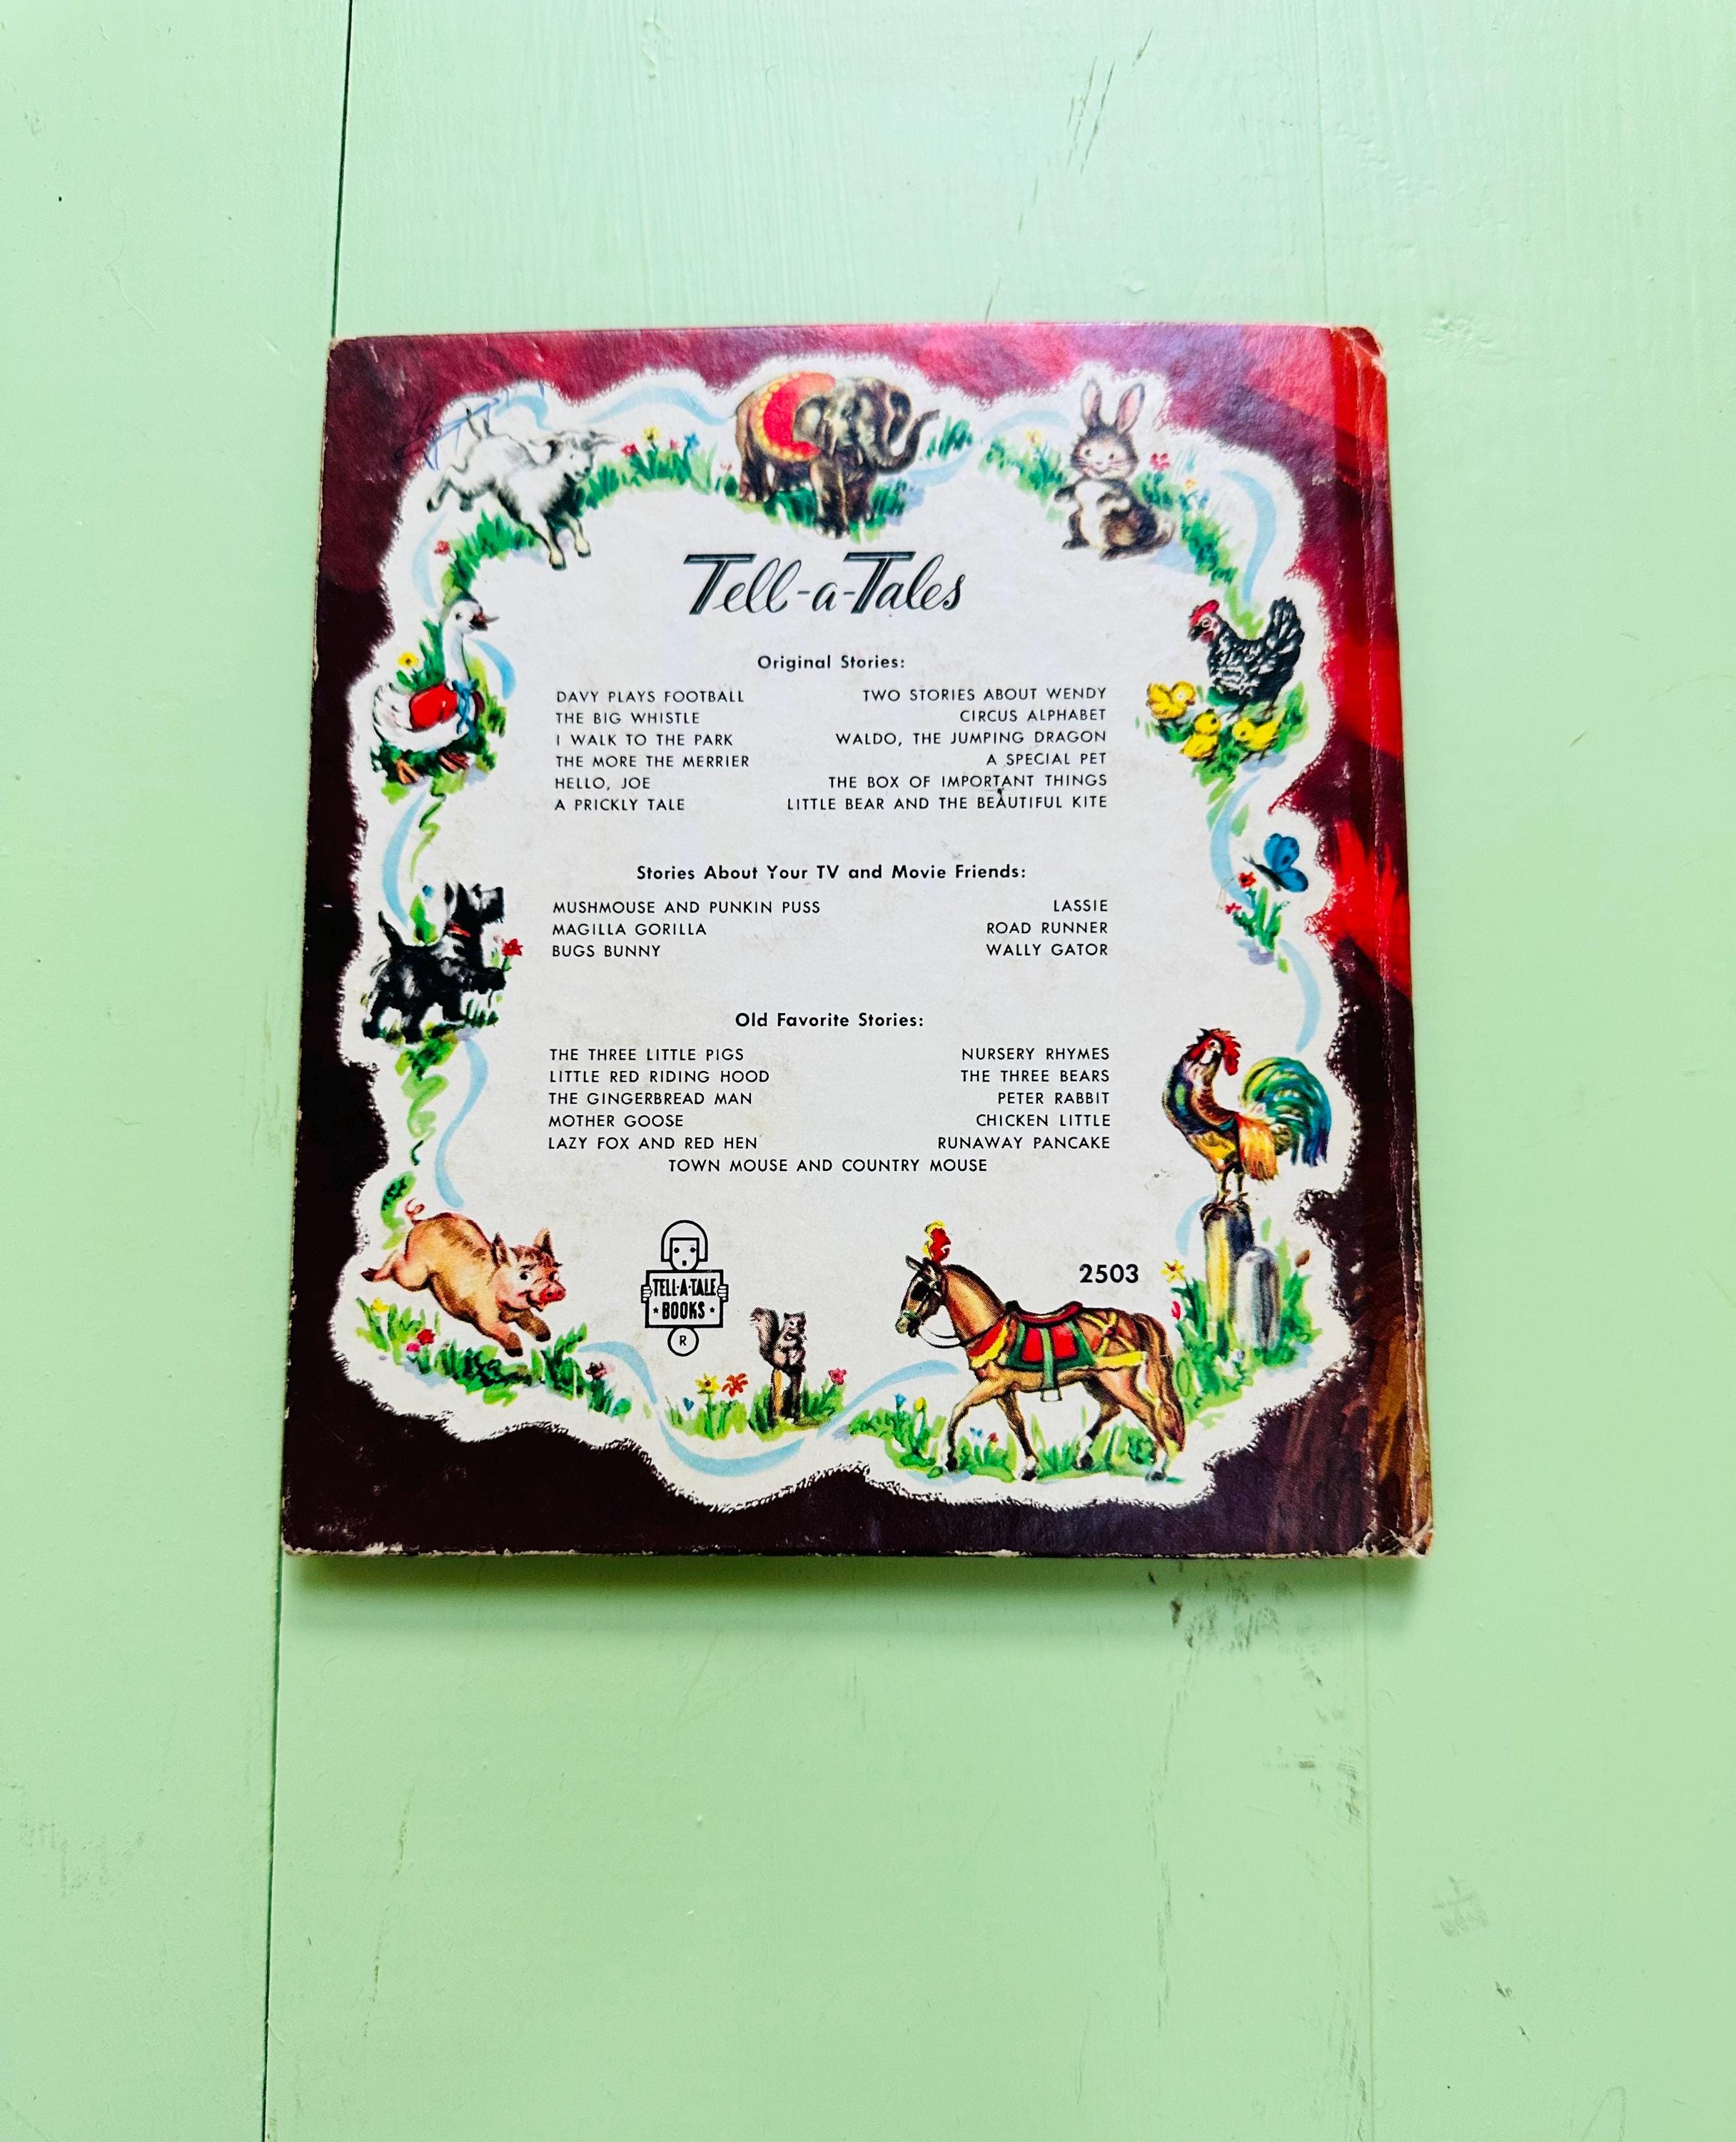 Tell-a-Tales
Original Stories:
DAVY PLAYS FOOTBALL TWO STORIES ABOUT WENDY
THE BIG WHISTLE CIRCUS ALPHABET
I WALK TO THE PARK WALDO, THE JUMPING DRAGON
THE MORE THE MERRIER A SPECIAL PET
HELLO, JOE THE BOX OF IMPORTANT THINGS
A PRICKLY TALE LITTLE BEAR AND THE BEAUTIFUL KITE
Stories About Your TV and Movie Friends:
MUSHMOUSE AND PUNKIN PUSS LASSIE
MAGILLA GORILLA ROAD RUNNER
BUGS BUNNY WALLY GATOR
Old Favorite Stories:
THE THREE LITTLE PIGS NURSERY RHYMES
LITTLE RED RIDING HOOD THE THREE BEARS
THE GINGERBREAD MAN PETER RABBIT
MOTHER GOOSE CHICKEN LITTLE
LAZY FOX AND RED HEN RUNAWAY PANCAKE
TOWN MOUSE AND COUNTRY MOUSE
TELL-A-TALE
BOOKS
R
2503